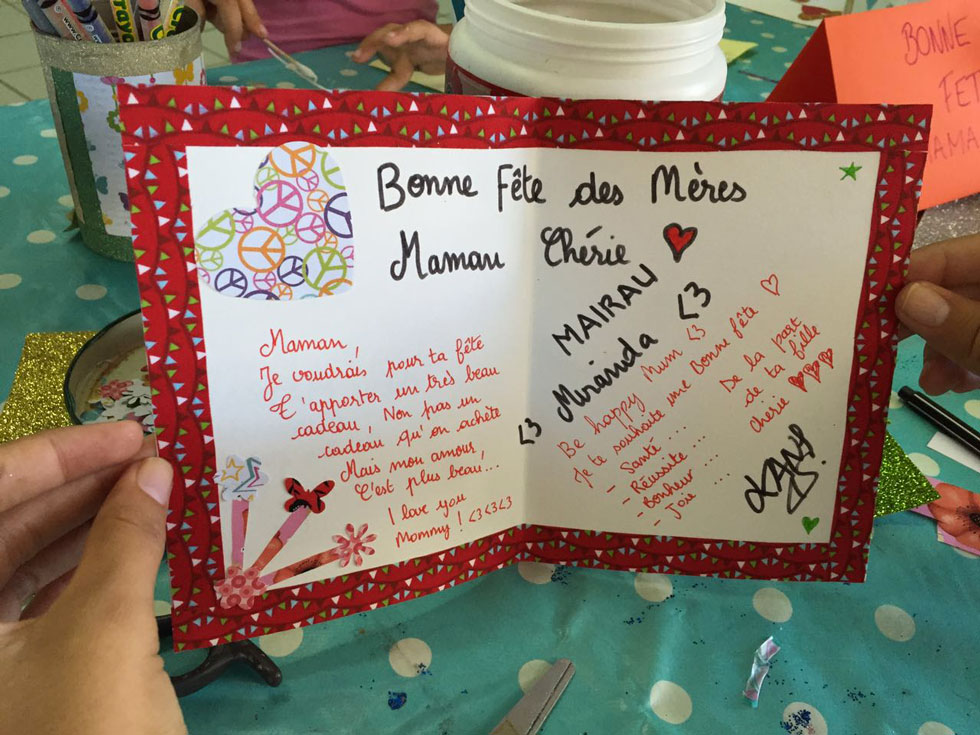 Bonne Fête des Mères
Maman Chérie
Maman,
Je voudrais pour ta fête
T'apporter un très beau
cadeau, Non pas un
cadeau qu'on achète
Mais mon amour,
C'est plus beau...
I love you
Mommy ! <3<3<3
MAIRAU
Miranda <3
<3
Be happy Mum <3
Je te souhaite une Bonne fête
- Santé ...
- Réussite ...
- Bonheur ...
- Joie
De la part
de ta fille
chérie
BONNE
FET
AMA